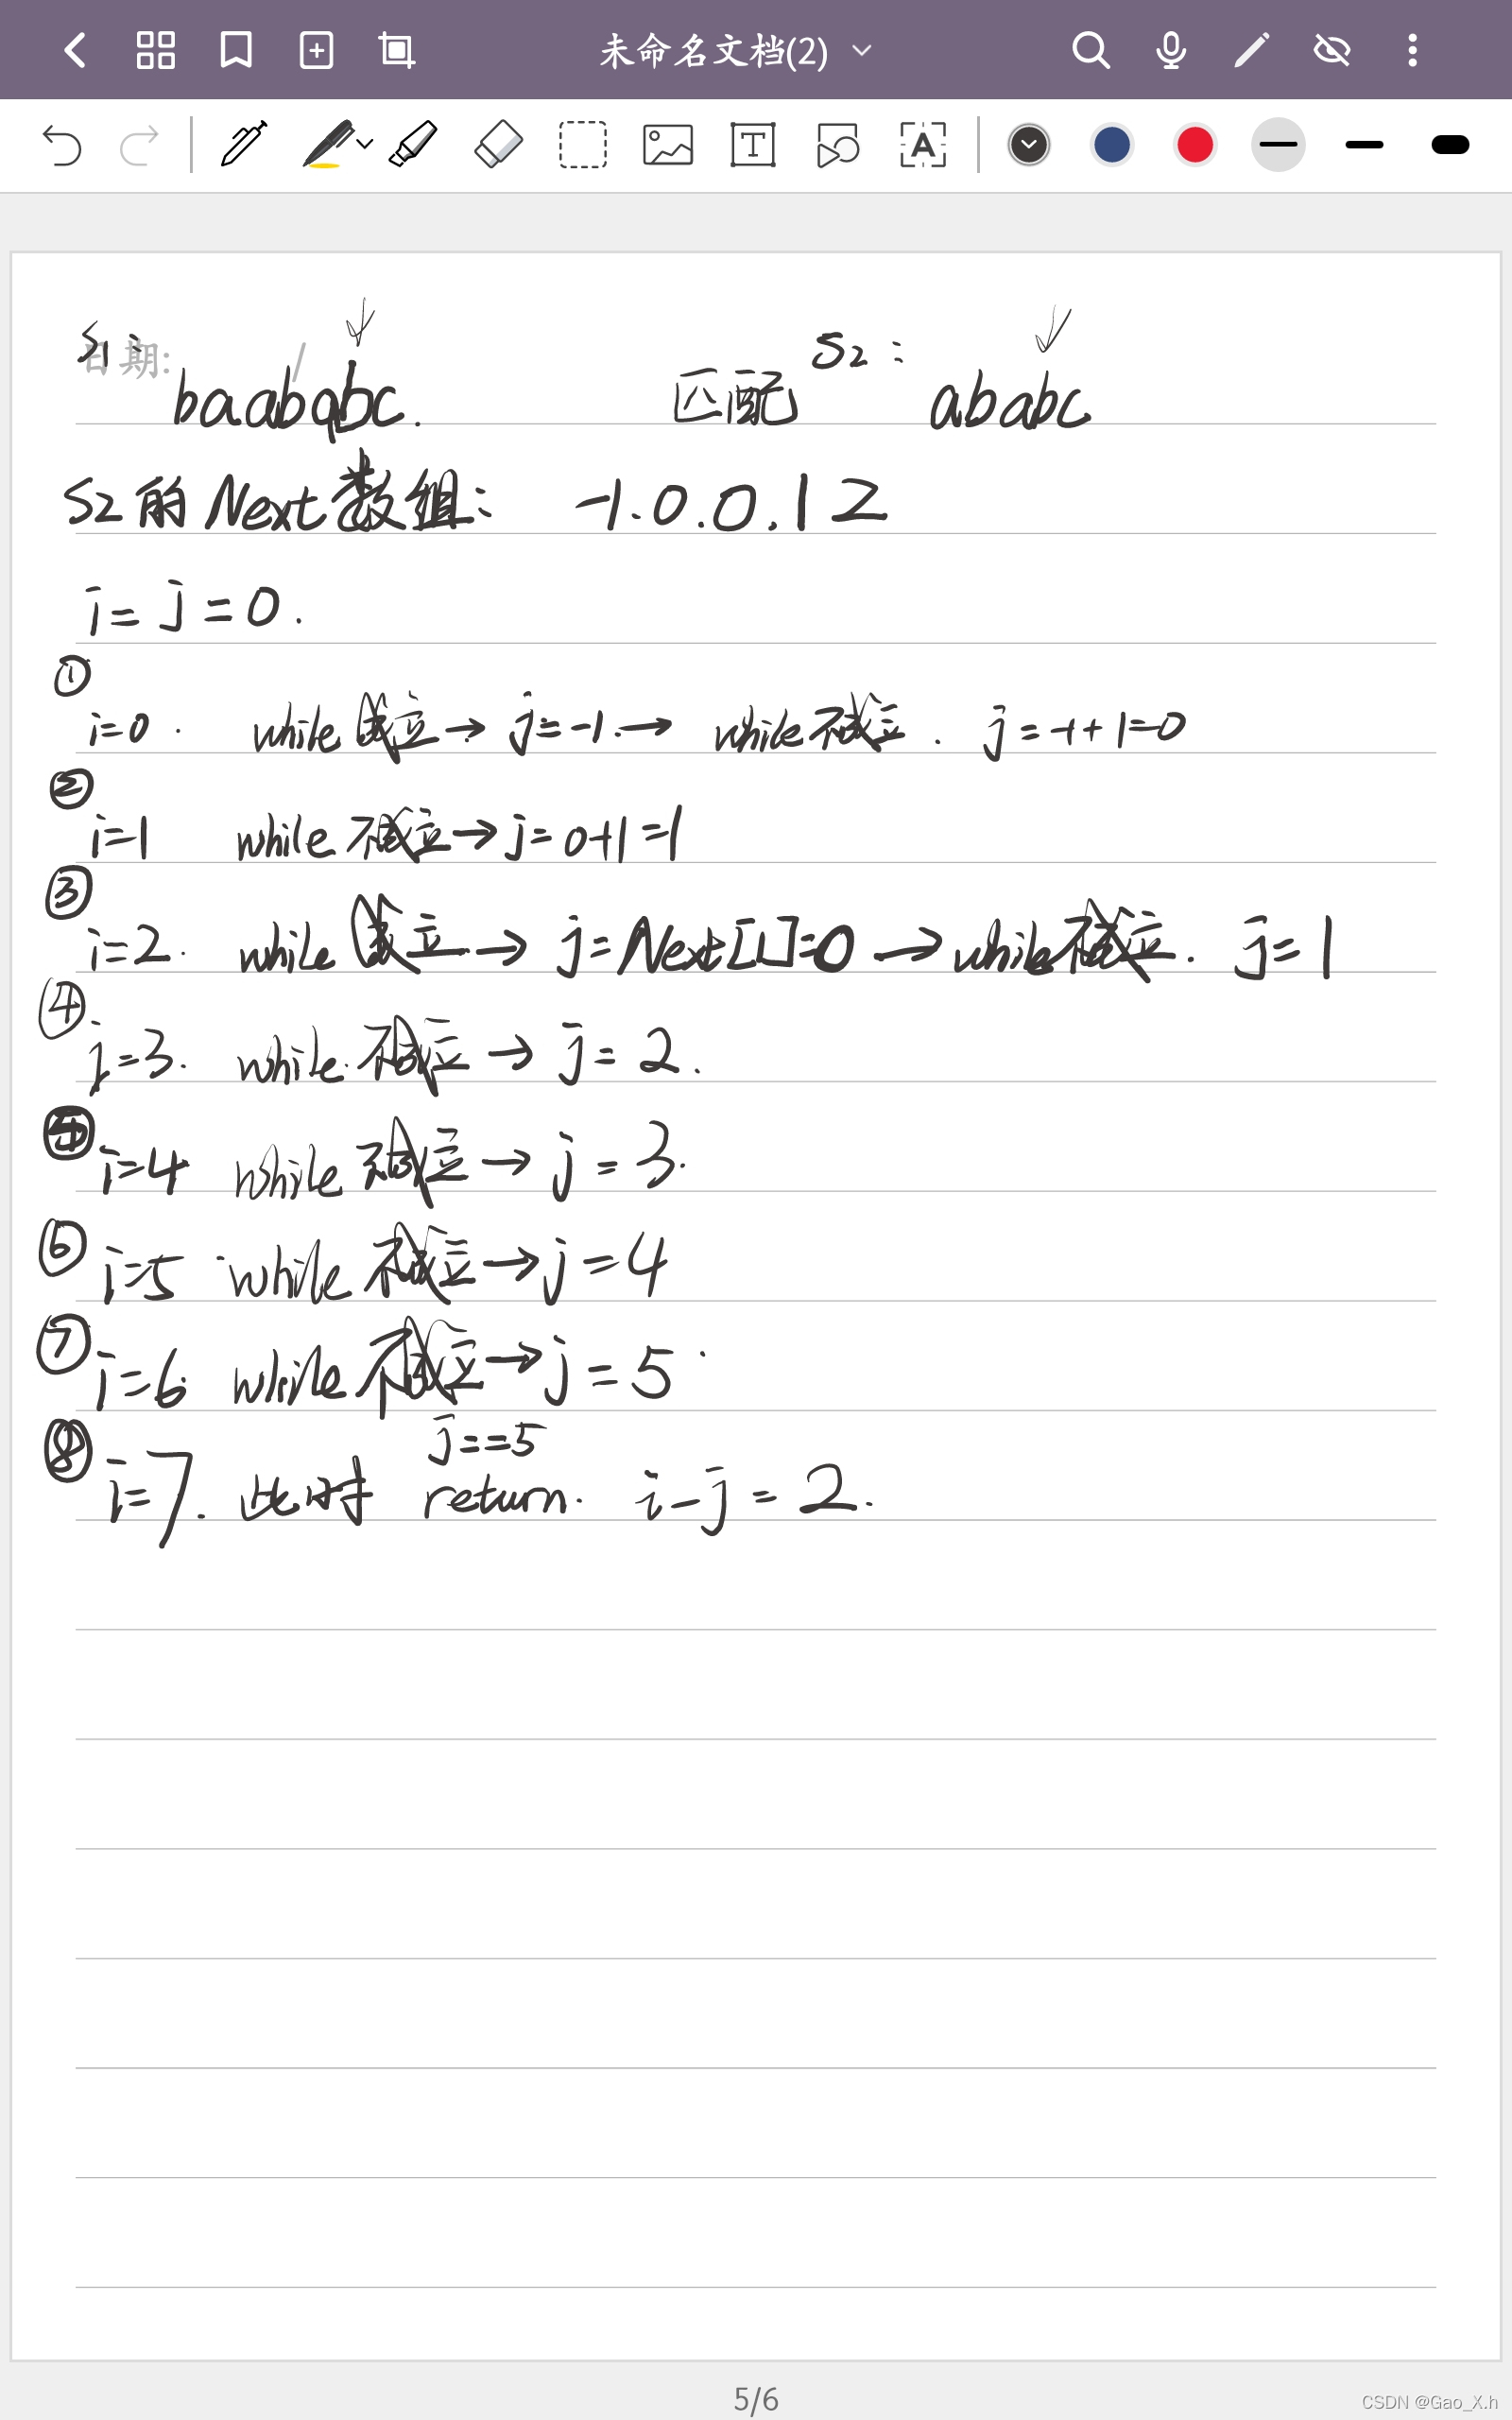 未命名文档(2)
S1:
日期:
baababc.
匹配
S2:
ababc
S2的Next数组: -1.0.0.1 2
i=j=0.
①
i=0. while成立→j=-1.→ while不成立. j=-1+1=0
②
i=1 while不成立→j=0+1=1
③
i=2. while成立→j=Next[1]=0→while不成立. j=1
④
i=3. while不成立→j=2.
i=4 while不成立→j=3.
⑥ i=5 while不成立→j=4
⑦ i=6 while不成立→j=5.
j==5
⑧ i=7. 此时 return. i-j=2.
5/6
CSDN @Gao_X.h